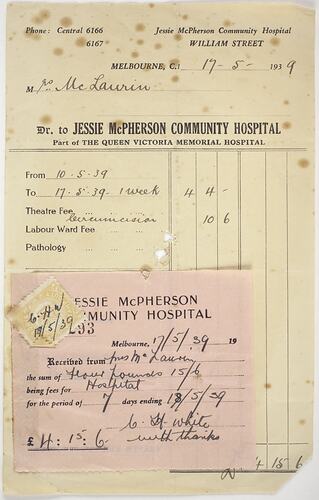 Phone: Central 6166
6167
Jessie McPherson Community Hospital
WILLIAM STREET
MELBOURNE, C.1 17-5-1939
Mrs McLaurin
Dr. to JESSIE McPHERSON COMMUNITY HOSPITAL
Part of THE QUEEN VICTORIA MEMORIAL HOSPITAL
From 10.5.39
To 17.5.39 1 week 4 4 -
Theatre Fee Circumcision 10 6
Labour Ward Fee
Pathology
C.H.W
17/5/39
JESSIE McPHERSON
COMMUNITY HOSPITAL
293
Melbourne, 17/5/39 19
Received from Mrs McLaurin
the sum of Four Pounds 15/6
being fees for Hospital
for the period of 7 days ending 18/5/39
C H White
with thanks
£4:15:6
4 15 6